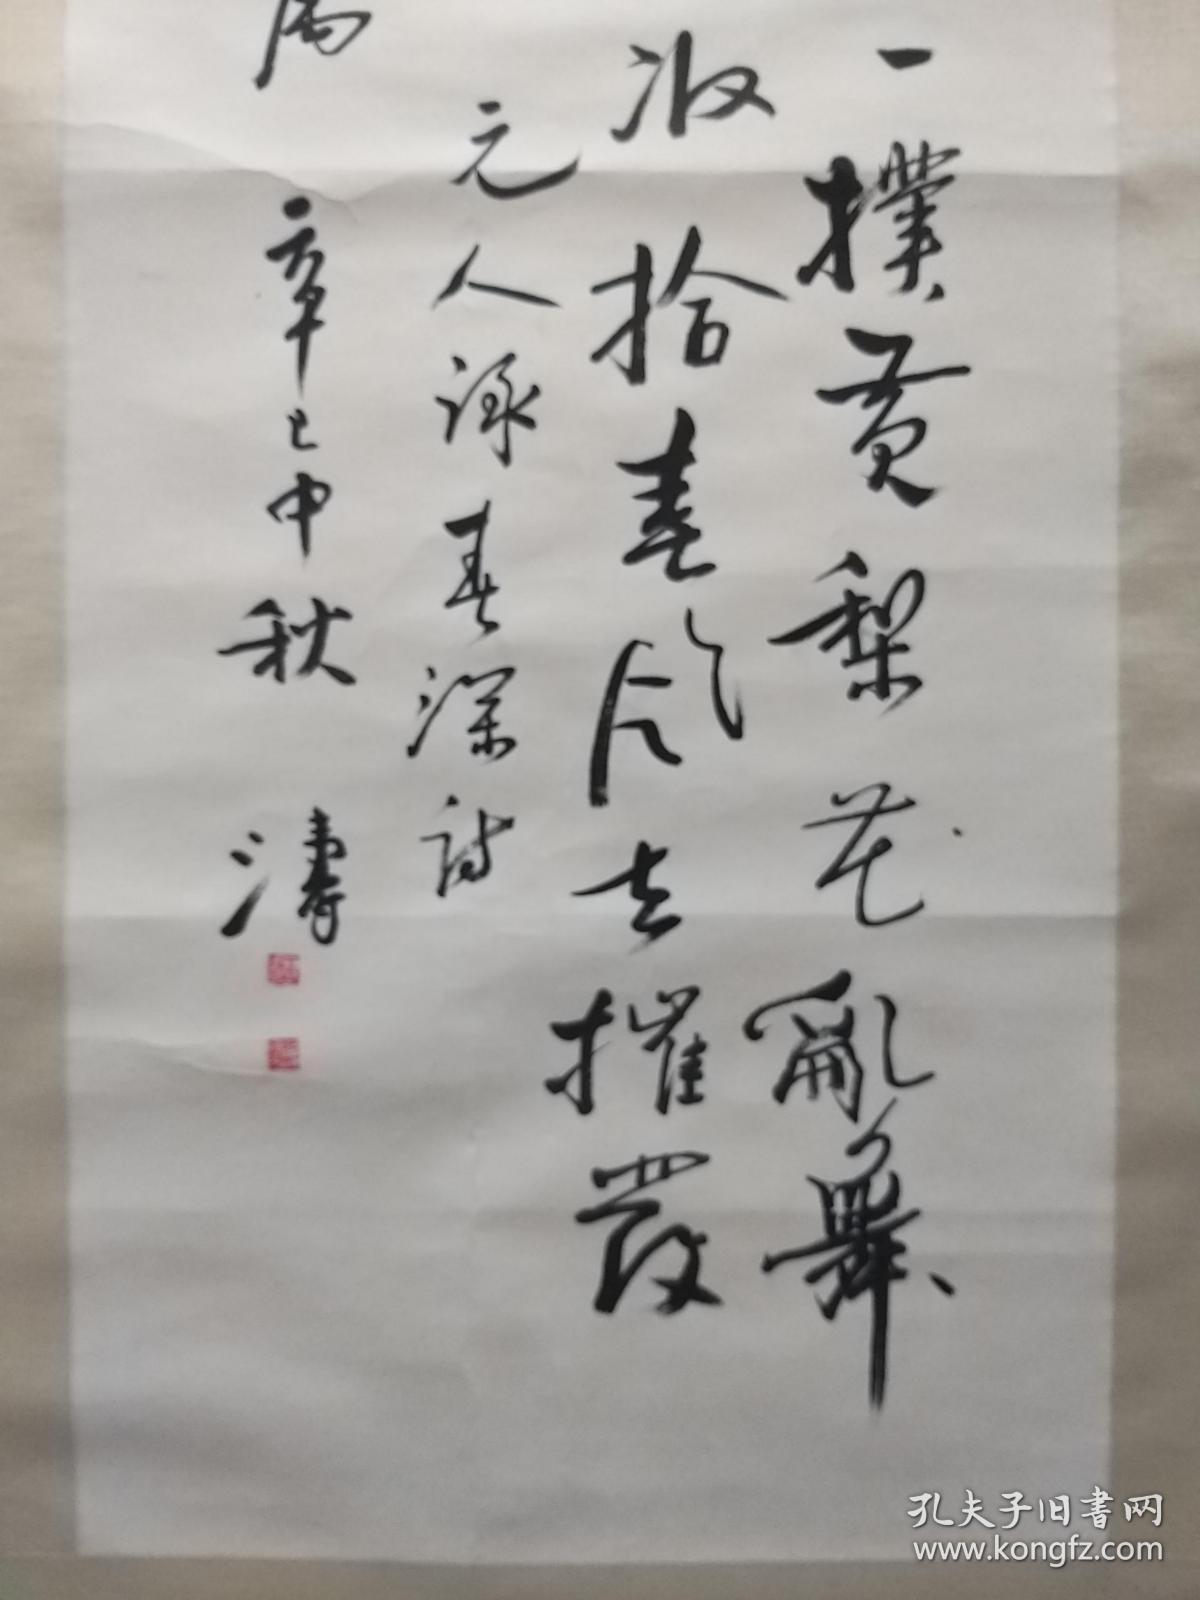 一撲黄梨花亂舞
收拾春風去摧發
元人詠春深詩
辛巳中秋 濤
孔夫子旧书网
www.kongfz.com